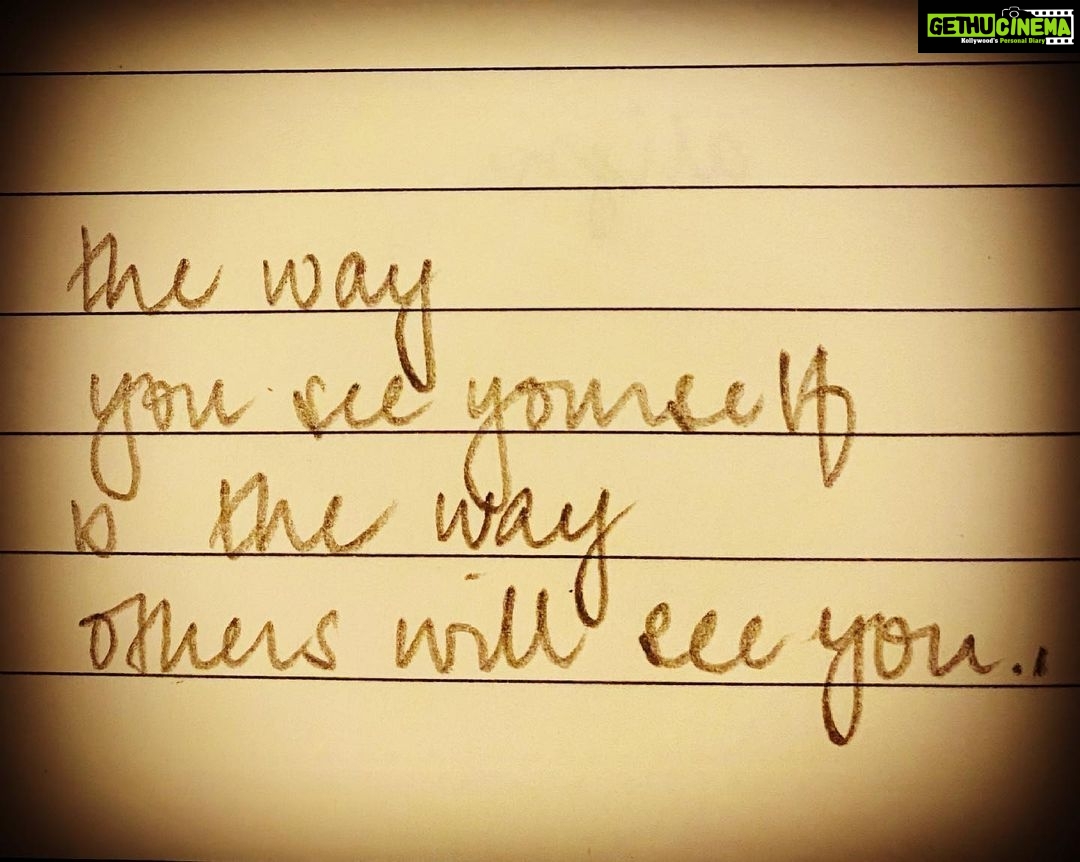 GETHUCINEMA
Kollywood's Personal Diary
the way
you see yourself
is the way
others will see you..